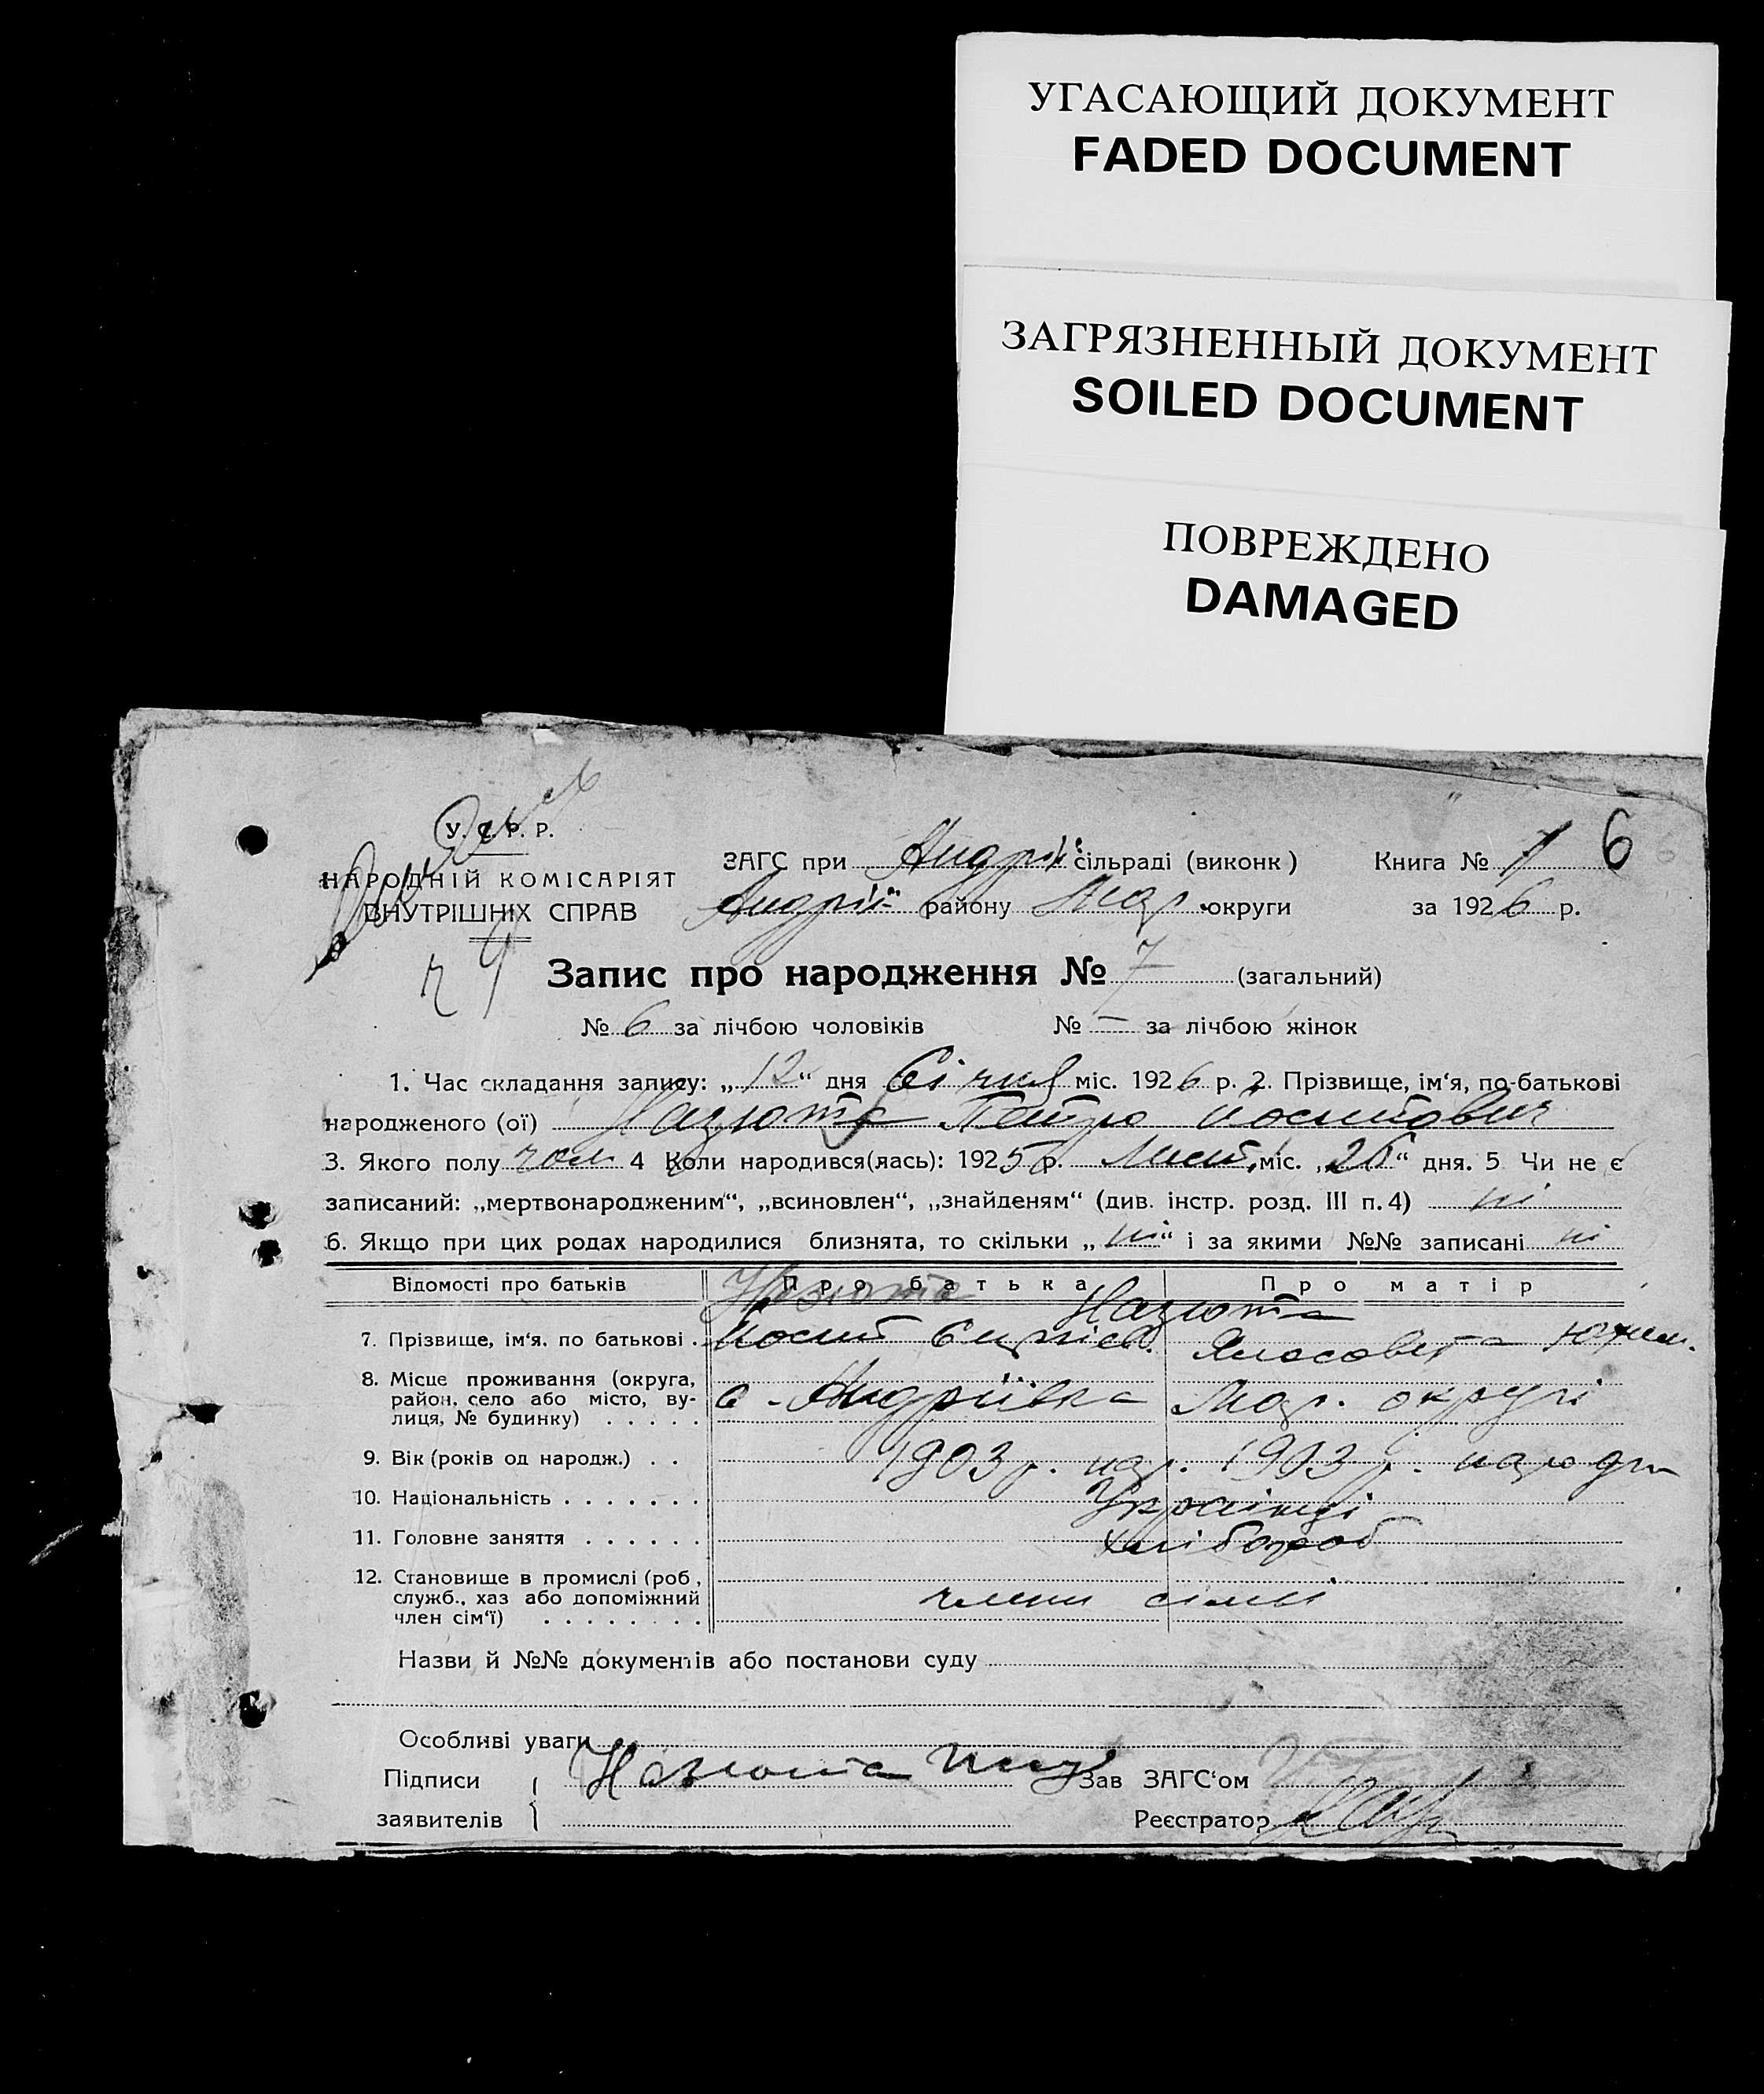 УГАСАЮЩИЙ ДОКУМЕНТ
FADED DOCUMENT
ЗАГРЯЗНЕННЫЙ ДОКУМЕНТ
SOILED DOCUMENT
ПОВРЕЖДЕНО
DAMAGED
У. С. Р. Р.
НАРОДНІЙ КОМІСАРІЯТ
ВНУТРІШНІХ СПРАВ
ЗАГС при Андрії сільраді (виконк) Книга № 1 6
Андрії району Мар. округи за 1926 р.
Запис про народження № 7 (загальний)
№ 6 за лічбою чоловіків № — за лічбою жінок
1. Час складання запису: „12“ дня Січня міс. 1926 р. 2. Прізвище, ім‘я, по-батькові
народженого (ої) Назюта Петро Йосипович
3. Якого полу чол 4 Коли народився(лась): 1925 р. Лист. міс. „26“ дня. 5 Чи не є
записаний: „мертвонародженим“, „всиновлен“, „знайденям“ (див. інстр. розд. III п. 4) ні
6. Якщо при цих родах народилися близнята, то скільки „ні“ і за якими №№ записані ні
Відомості про батьків Про батька Про матір
Назюта Назюта
7. Прізвище, ім‘я. по батькові . Йосип
8. Місце проживання (округа, район, село або місто, вулиця, № будинку) . . . . . с. Андріївка Мар. округи
9. Вік (років од народж.) . . 1903 р. нар. 1903 р. народж
10. Національність . . . . . . . Українці
11. Головне заняття . . . . . . хлібороб
12. Становище в промислі (роб, служб., хаз або допоміжний член сім‘ї) . . . . . . . . члени сімї
Назви й №№ документів або постанови суду
Особливі уваги
Підписи Назюта Зав ЗАГС‘ом
заявителів Реєстратор